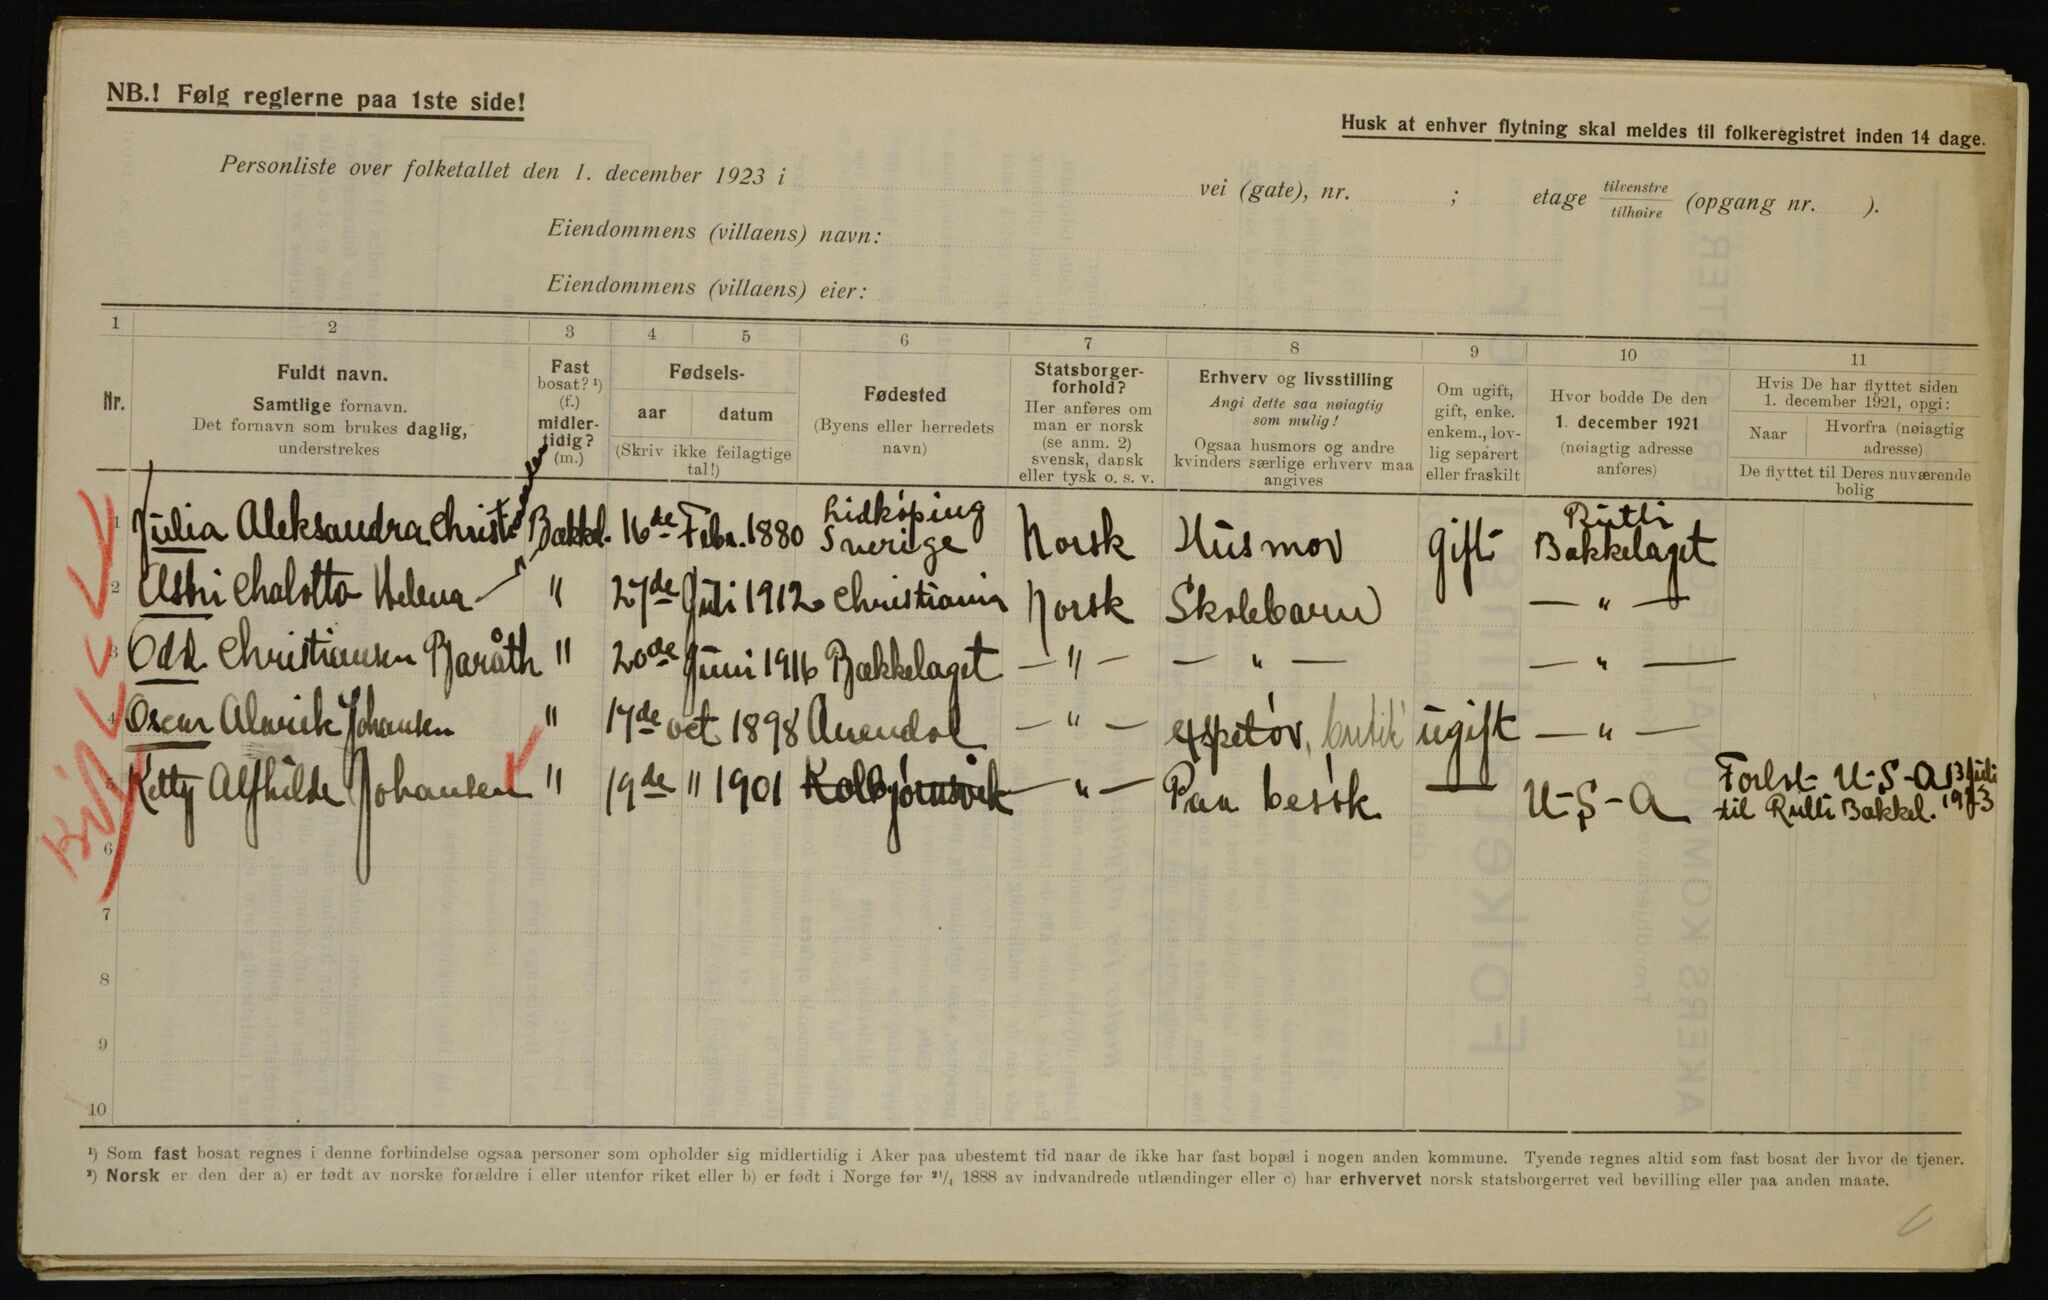 NB.! Følg reglerne paa 1ste side!
Husk at enhver flytning skal meldes til folkeregistret inden 14 dage.
Personliste over folketallet den 1. december 1923 i vei (gate), nr. ; etage tilvenstre / tilhøire (opgang nr. ).
Eiendommens (villaens) navn:
Eiendommens (villaens) eier:
1 2 3 4 5 6 7 8 9 10 11
Nr.
Fuldt navn.
Samtlige fornavn.
Det fornavn som brukes daglig,
understrekes
Fast
bosat? ¹)
(f.)
midler-
tidig?
(m.)
Fødsels-
aar datum
(Skriv ikke feilagtige
tal!)
Fødested
(Byens eller herredets
navn)
Statsborger-
forhold?
Her anføres om
man er norsk
(se anm. 2)
svensk, dansk
eller tysk o. s. v.
Erhverv og livsstilling
Angi dette saa nøiagtig
som mulig!
Ogsaa husmors og andre
kvinders særlige erhverv maa
angives
Om ugift,
gift, enke.
enkem., lov-
lig separert
eller fraskilt
Hvor bodde De den
1. december 1921
(nøiagtig adresse
anføres)
Hvis De har flyttet siden
1. december 1921, opgi:
Naar Hvorfra (nøiagtig
adresse)
De flyttet til Deres nuværende
bolig
1 Julia Aleksandra Christiansen Bækkel. 16de Febr. 1880 Lidköping Sverige Norsk Husmor gift Rutli Bækkelaget
2 Astri Chalotta Helena — " 27de Juli 1912 Christiania Norsk Skolebarn — " —
3 Odd Christiansen Bjaråth " 20de Juni 1916 Bækkelaget — " — — " — — " —
4 Oscar Alarik Johansen " 17de oct 1898 Arendal — " — expetør, butik ugift — " —
5 Ketty Alfhilde Johansen " 19de " 1901 Kolbjørnsvik — " — Paa besøk — U-S-A Forlot U-S-A 13 Juli
til Rutli Bækkel. 1923
6
7
8
9
10
¹) Som fast bosat regnes i denne forbindelse ogsaa personer som opholder sig midlertidig i Aker paa ubestemt tid naar de ikke har fast bopæl i nogen anden kommune. Tyende regnes altid som fast bosat der hvor de tjener.
²) Norsk er den der a) er født av norske forældre i eller utenfor riket eller b) er født i Norge før ²¹/₄ 1888 av indvandrede utlændinger eller c) har erhvervet norsk statsborgerret ved bevilling eller paa anden maate.